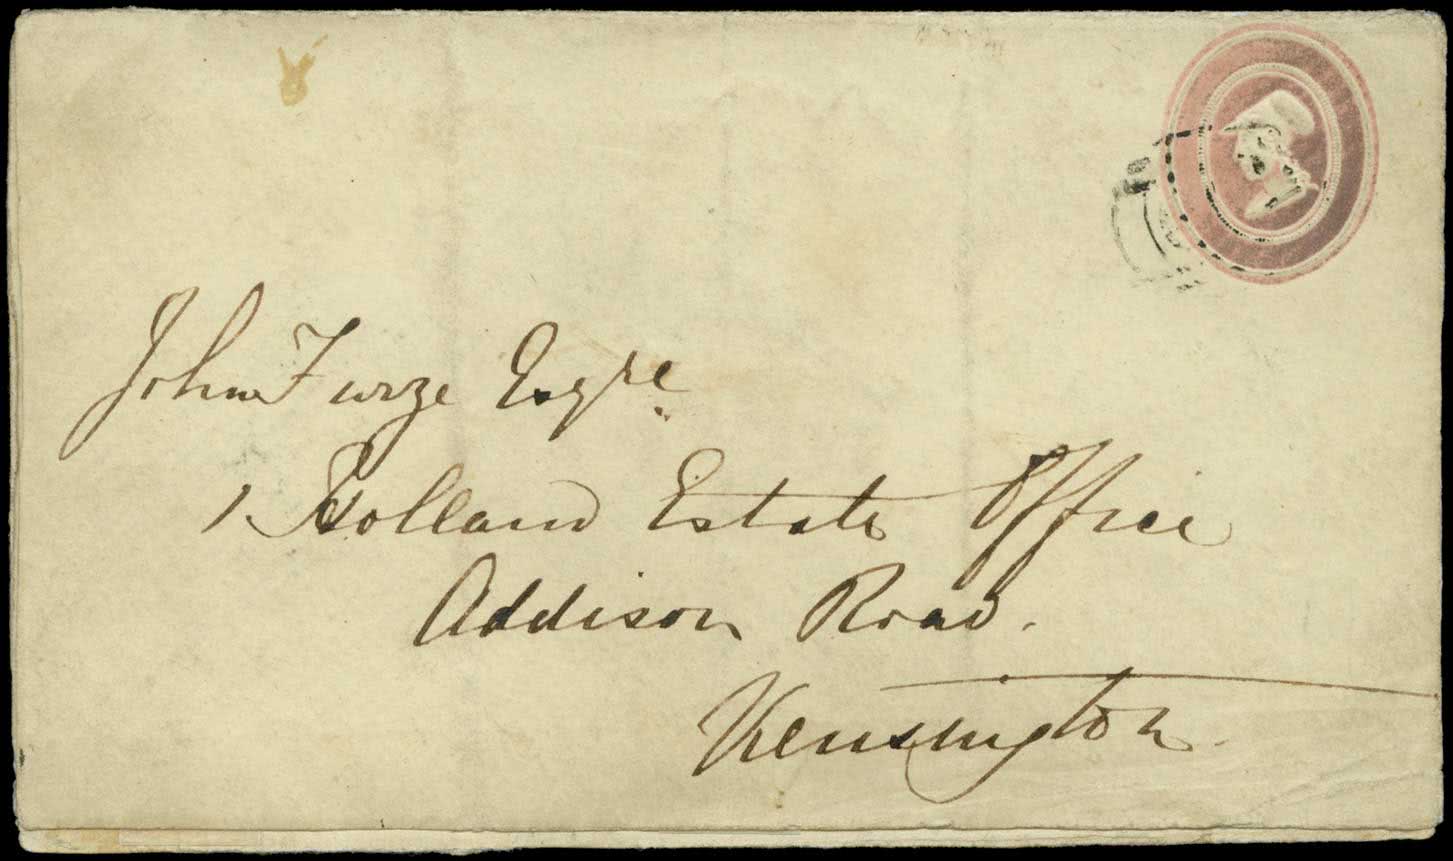 John Furze Esqre.
1 Holland Estate Office
Addison Road.
Kensington.